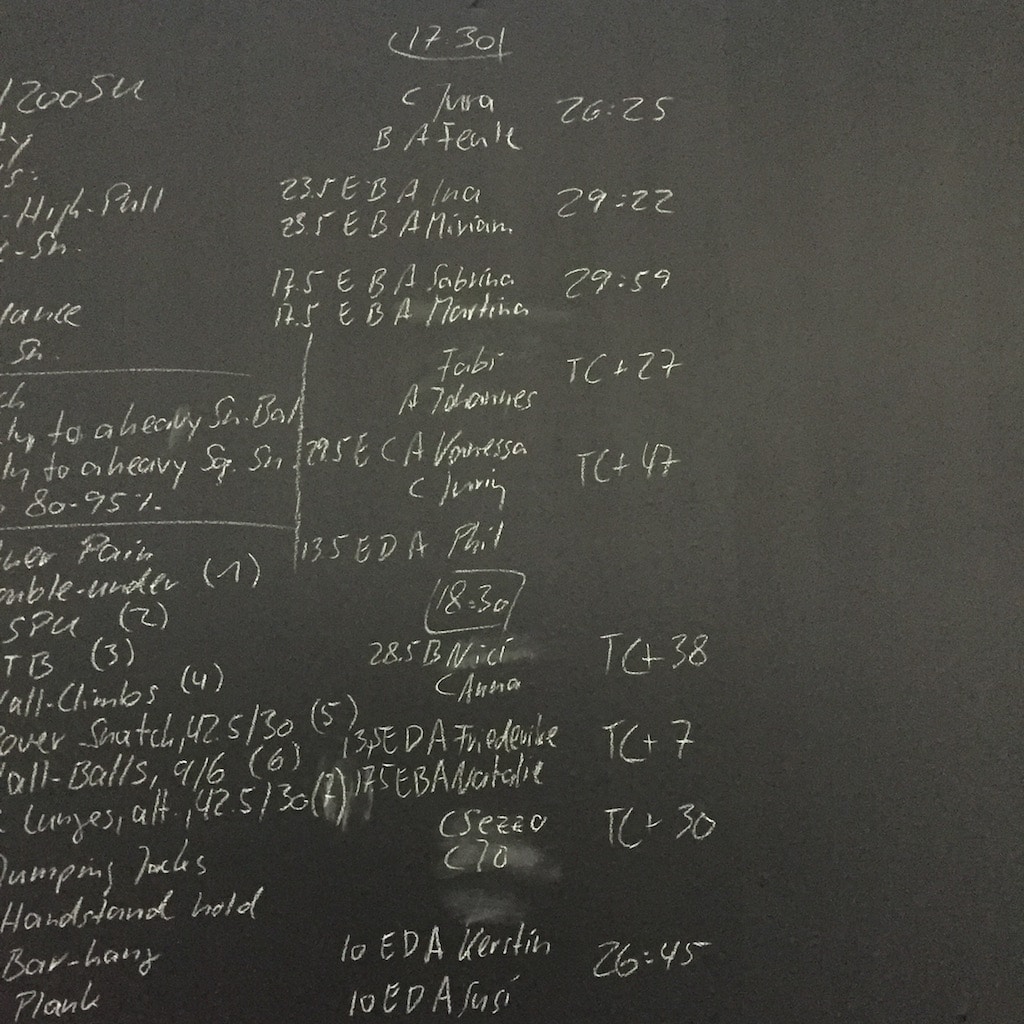 1200SU
ty
s:
-High-Pull
-Sn.
lance
Sn.
ch
to a heavy Sn. Bal
to a heavy Sq. Sn.
80-95%.
Pain
ouble-under (1)
SPU (2)
TB (3)
all-Climbs (4)
ower Snatch, 42.5/30 (5)
all-Balls, 9/6 (6)
Lunges, alt., 42.5/30 (7)
Jumping Jacks
Handstand hold
Bar-hang
Plank
17.30
C Jura 26:25
B A
23.5 E B A Ina 29:22
23.5 E B A Miriam
17.5 E B A Sabrina 29:59
17.5 E B A Martina
Fabi TC+27
A Johannes
29.5 E C A Vanessa TC+47
C
13.5 E D A Phil
18:30
28.5 B Nici TC+38
C Anna
13.5 E D A Friederike TC+7
17.5 E B A Natalie
C Sezza TC+30
C Jo
10 E D A Kerstin 26:45
10 E D A Susi